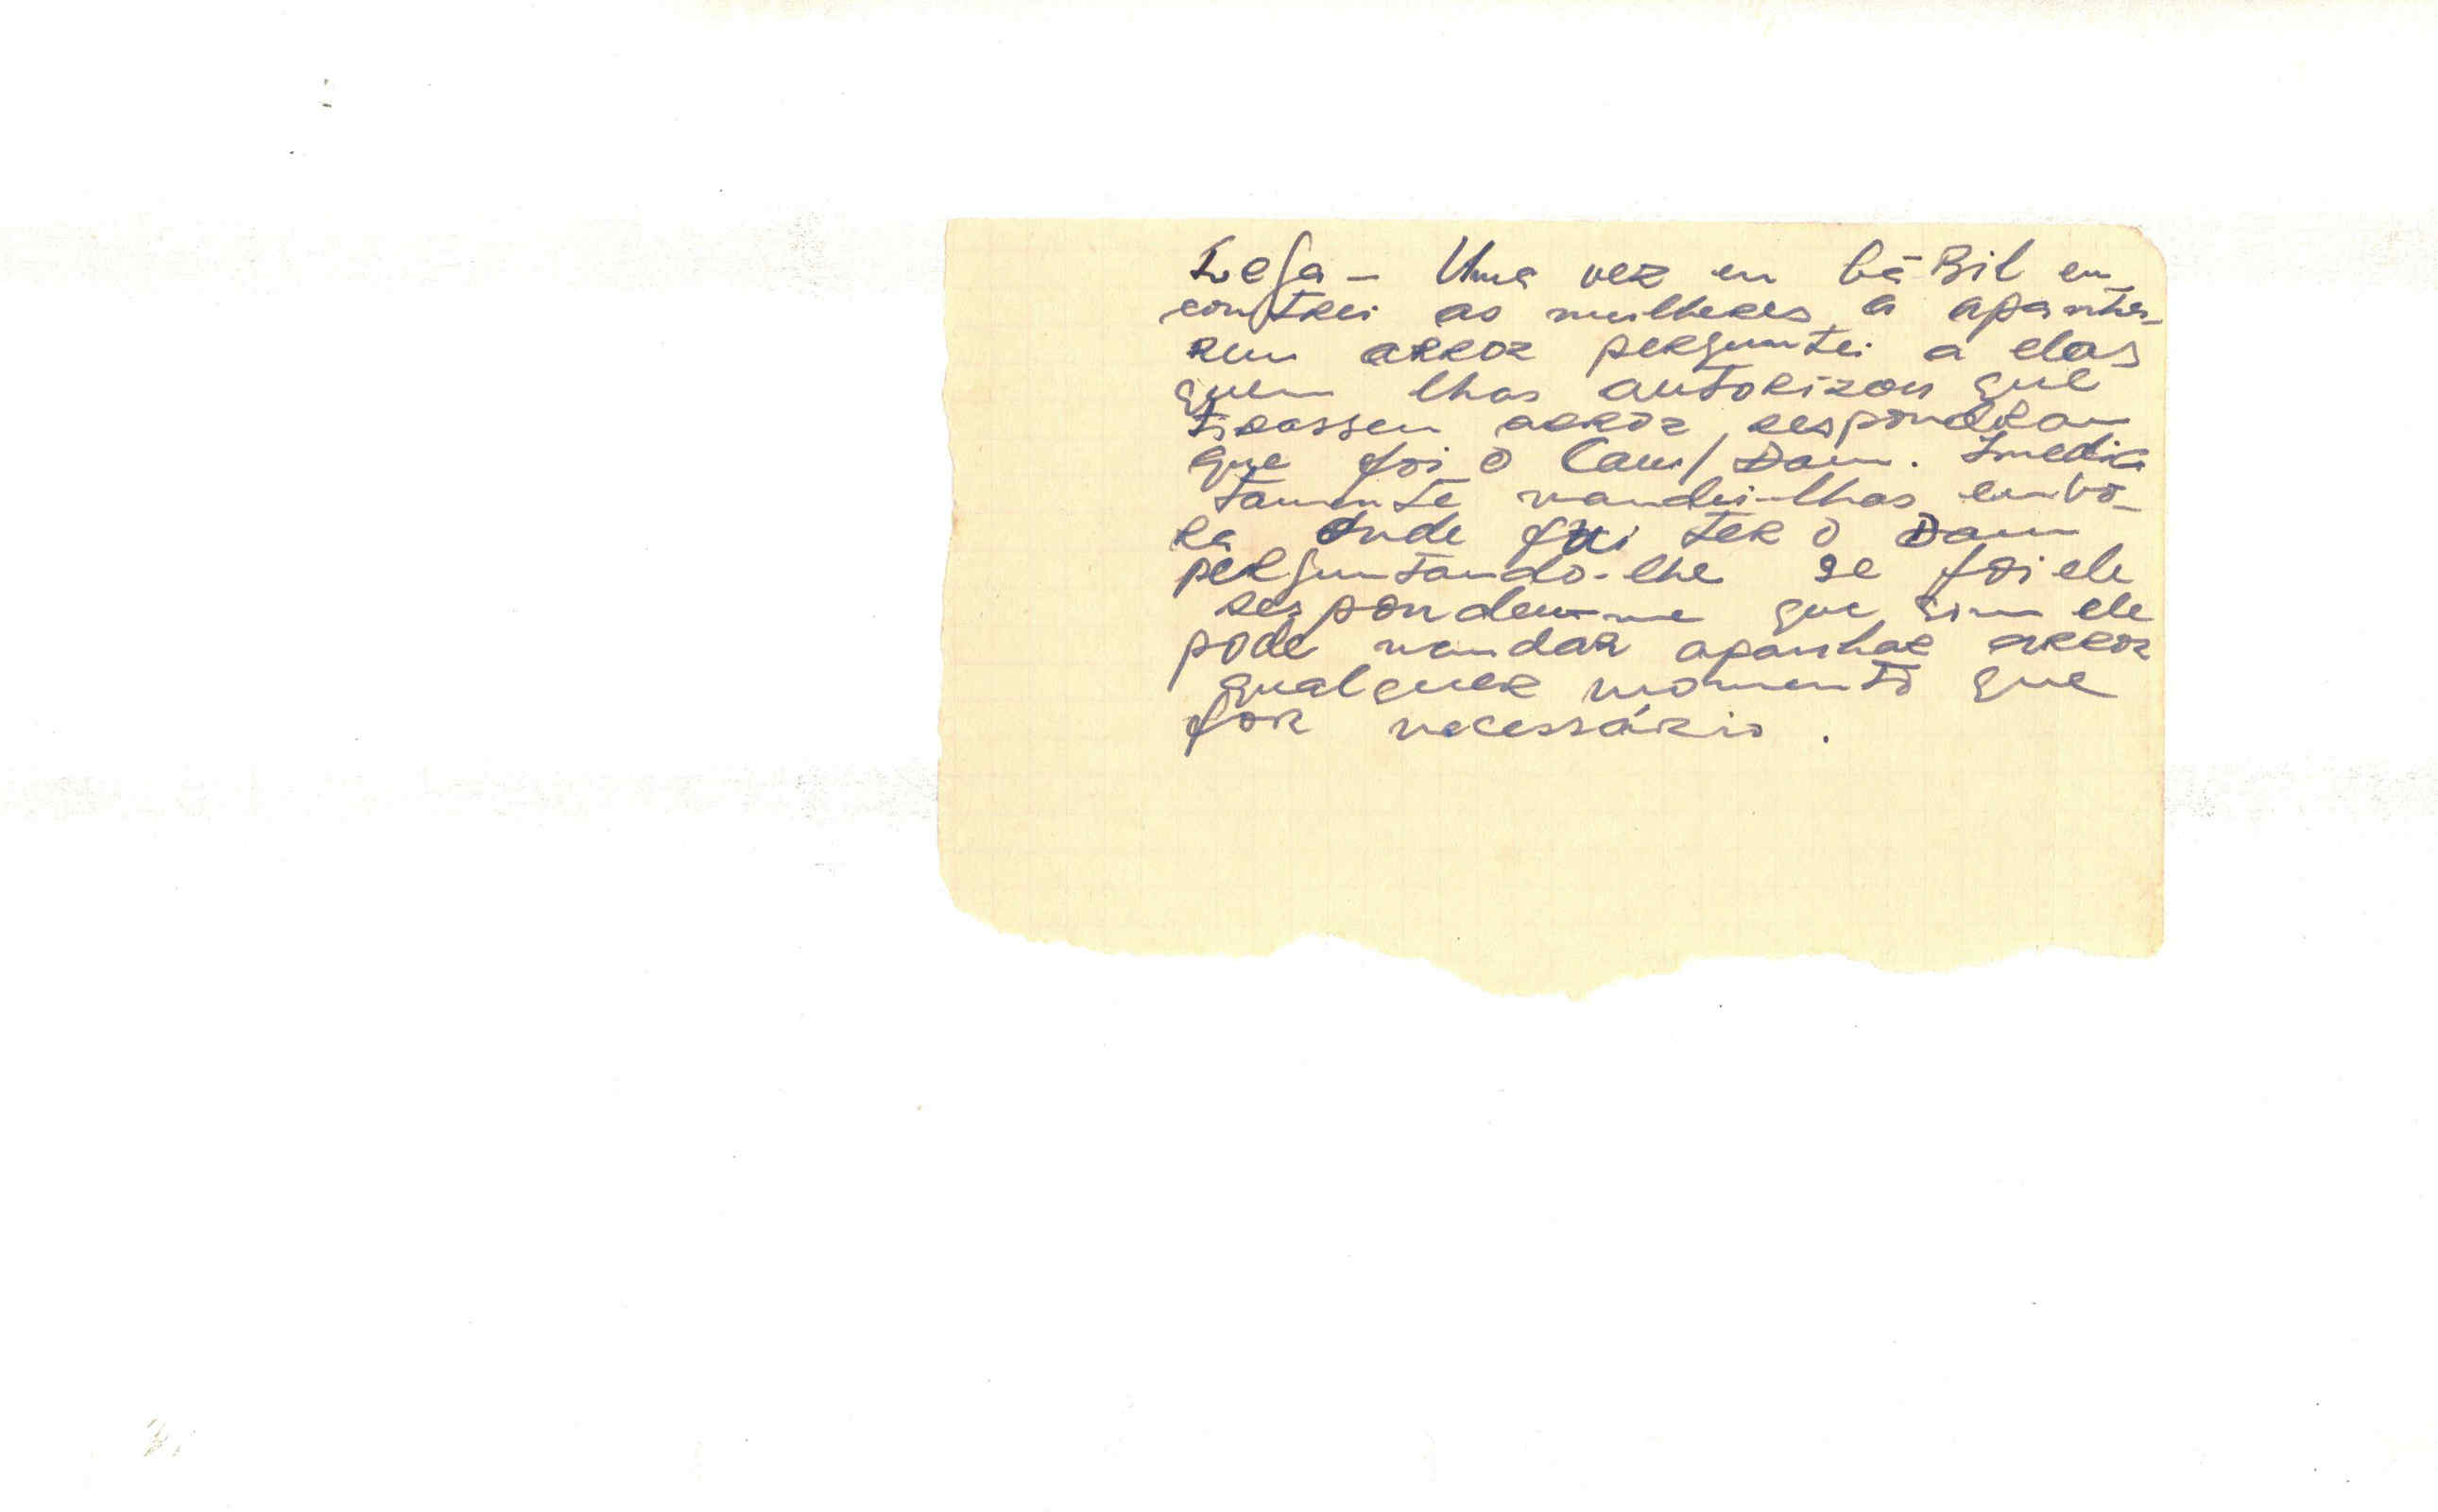 Lefa - Uma vez em Cã Bil en_
contrei as mulheres a apanha_
rem arroz perguntei a elas
quem lhas autorizou que
tirassem arroz, responderam
que foi o Cam/ Dam. Imedia
tamente mandei-lhas embo_
ra onde fui ter o Dam
perguntando-lhe se foi ele
respondeu-me que sim ele
pode mandar apanhar arroz
qualquer momento que
for necessário.